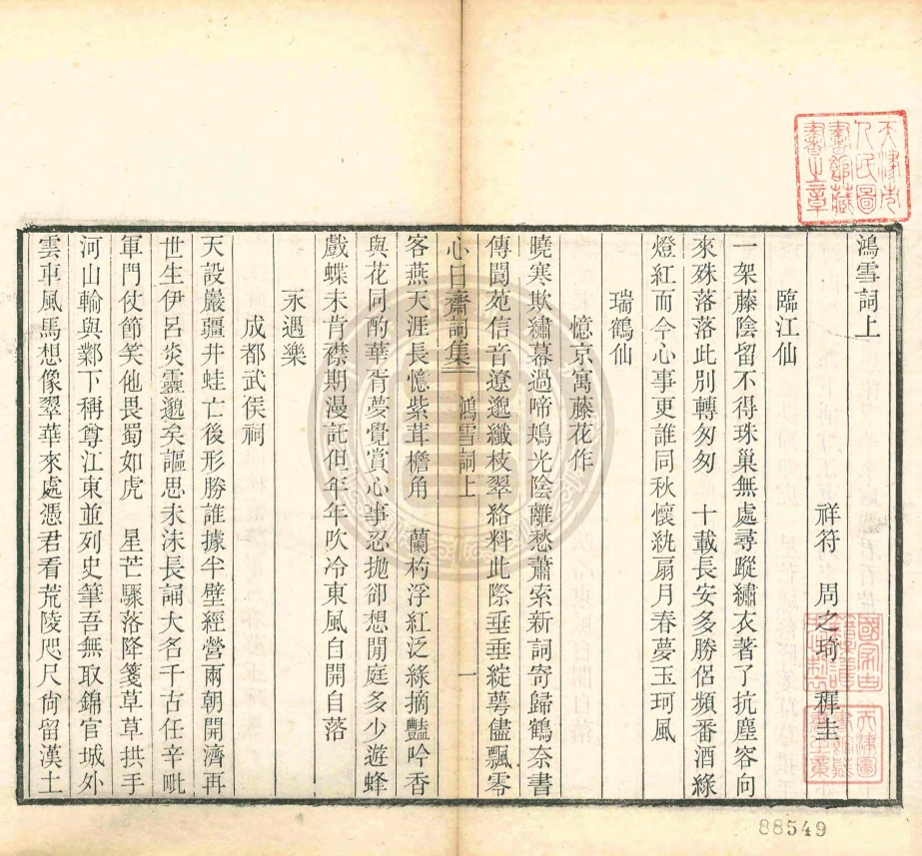 鴻雪詞上
祥符　周之琦　稚圭
臨江仙
一架藤陰留不得珠巢無處尋蹤繡衣著了抗塵容向
來殊落落此別轉匆匆　十載長安多勝侶頻番酒綠
燈紅而今心事更誰同秋懷紈扇月春夢玉珂風
瑞鶴仙
憶京寓藤花作
曉寒欺繡幕過啼鴂光陰離愁蕭索新詞寄歸鶴奈書
傳閬苑信音遼邈纖枝翠絡料此際垂垂綻萼儘飄零
心日齋詞集二　鴻雪詞上　一
客燕天涯長憶紫茸檐角　蘭杓浮紅泛綠摘豔吟香
與花同酌華胥夢覺賞心事忍拋卻想閒庭多少遊蜂
戲蝶未肯襟期漫託但年年吹冷東風自開自落
永遇樂
成都武侯祠
天設巖疆井蛙亡後形勝誰據半壁經營兩朝開濟再
世生伊呂炎靈邈矣謳思未沬長誦大名千古任辛毗
軍門仗節笑他畏蜀如虎　星芒驟落降箋草草拱手
河山輸與鄴下稱尊江東並列史筆吾無取錦官城外
雲車風馬想像翠華來處憑君看荒陵咫尺尙留漢土
天津市
人民圖
書館藏
書之章
88549